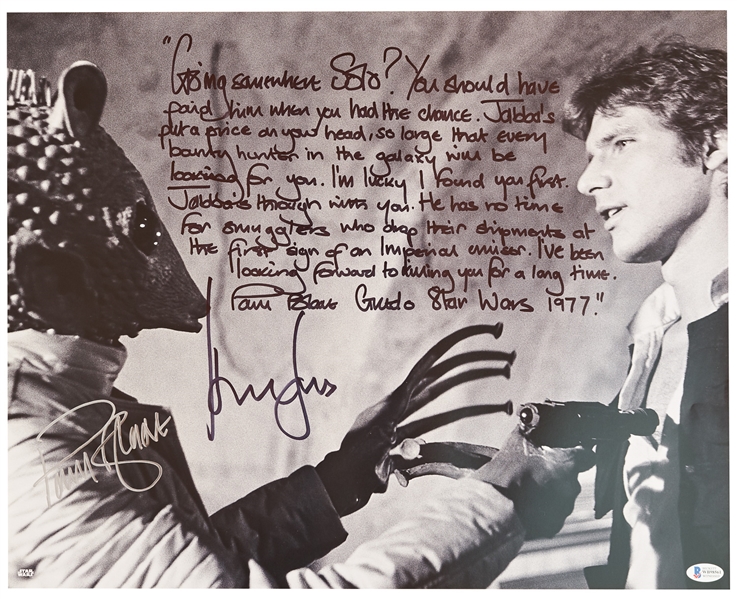 "Going somewhere Solo? You should have
paid him when you had the chance. Jabba's
put a price on your head, so large that every
bounty hunter in the galaxy will be
looking for you. I'm lucky I found you first.
Jabba's through with you. He has no time
for smugglers who drop their shipments at
the first sign of an Imperial cruiser. I've been
looking forward to killing you for a long time.
Paul Blake Greedo Star Wars 1977."
Paul Blake
STAR WARS